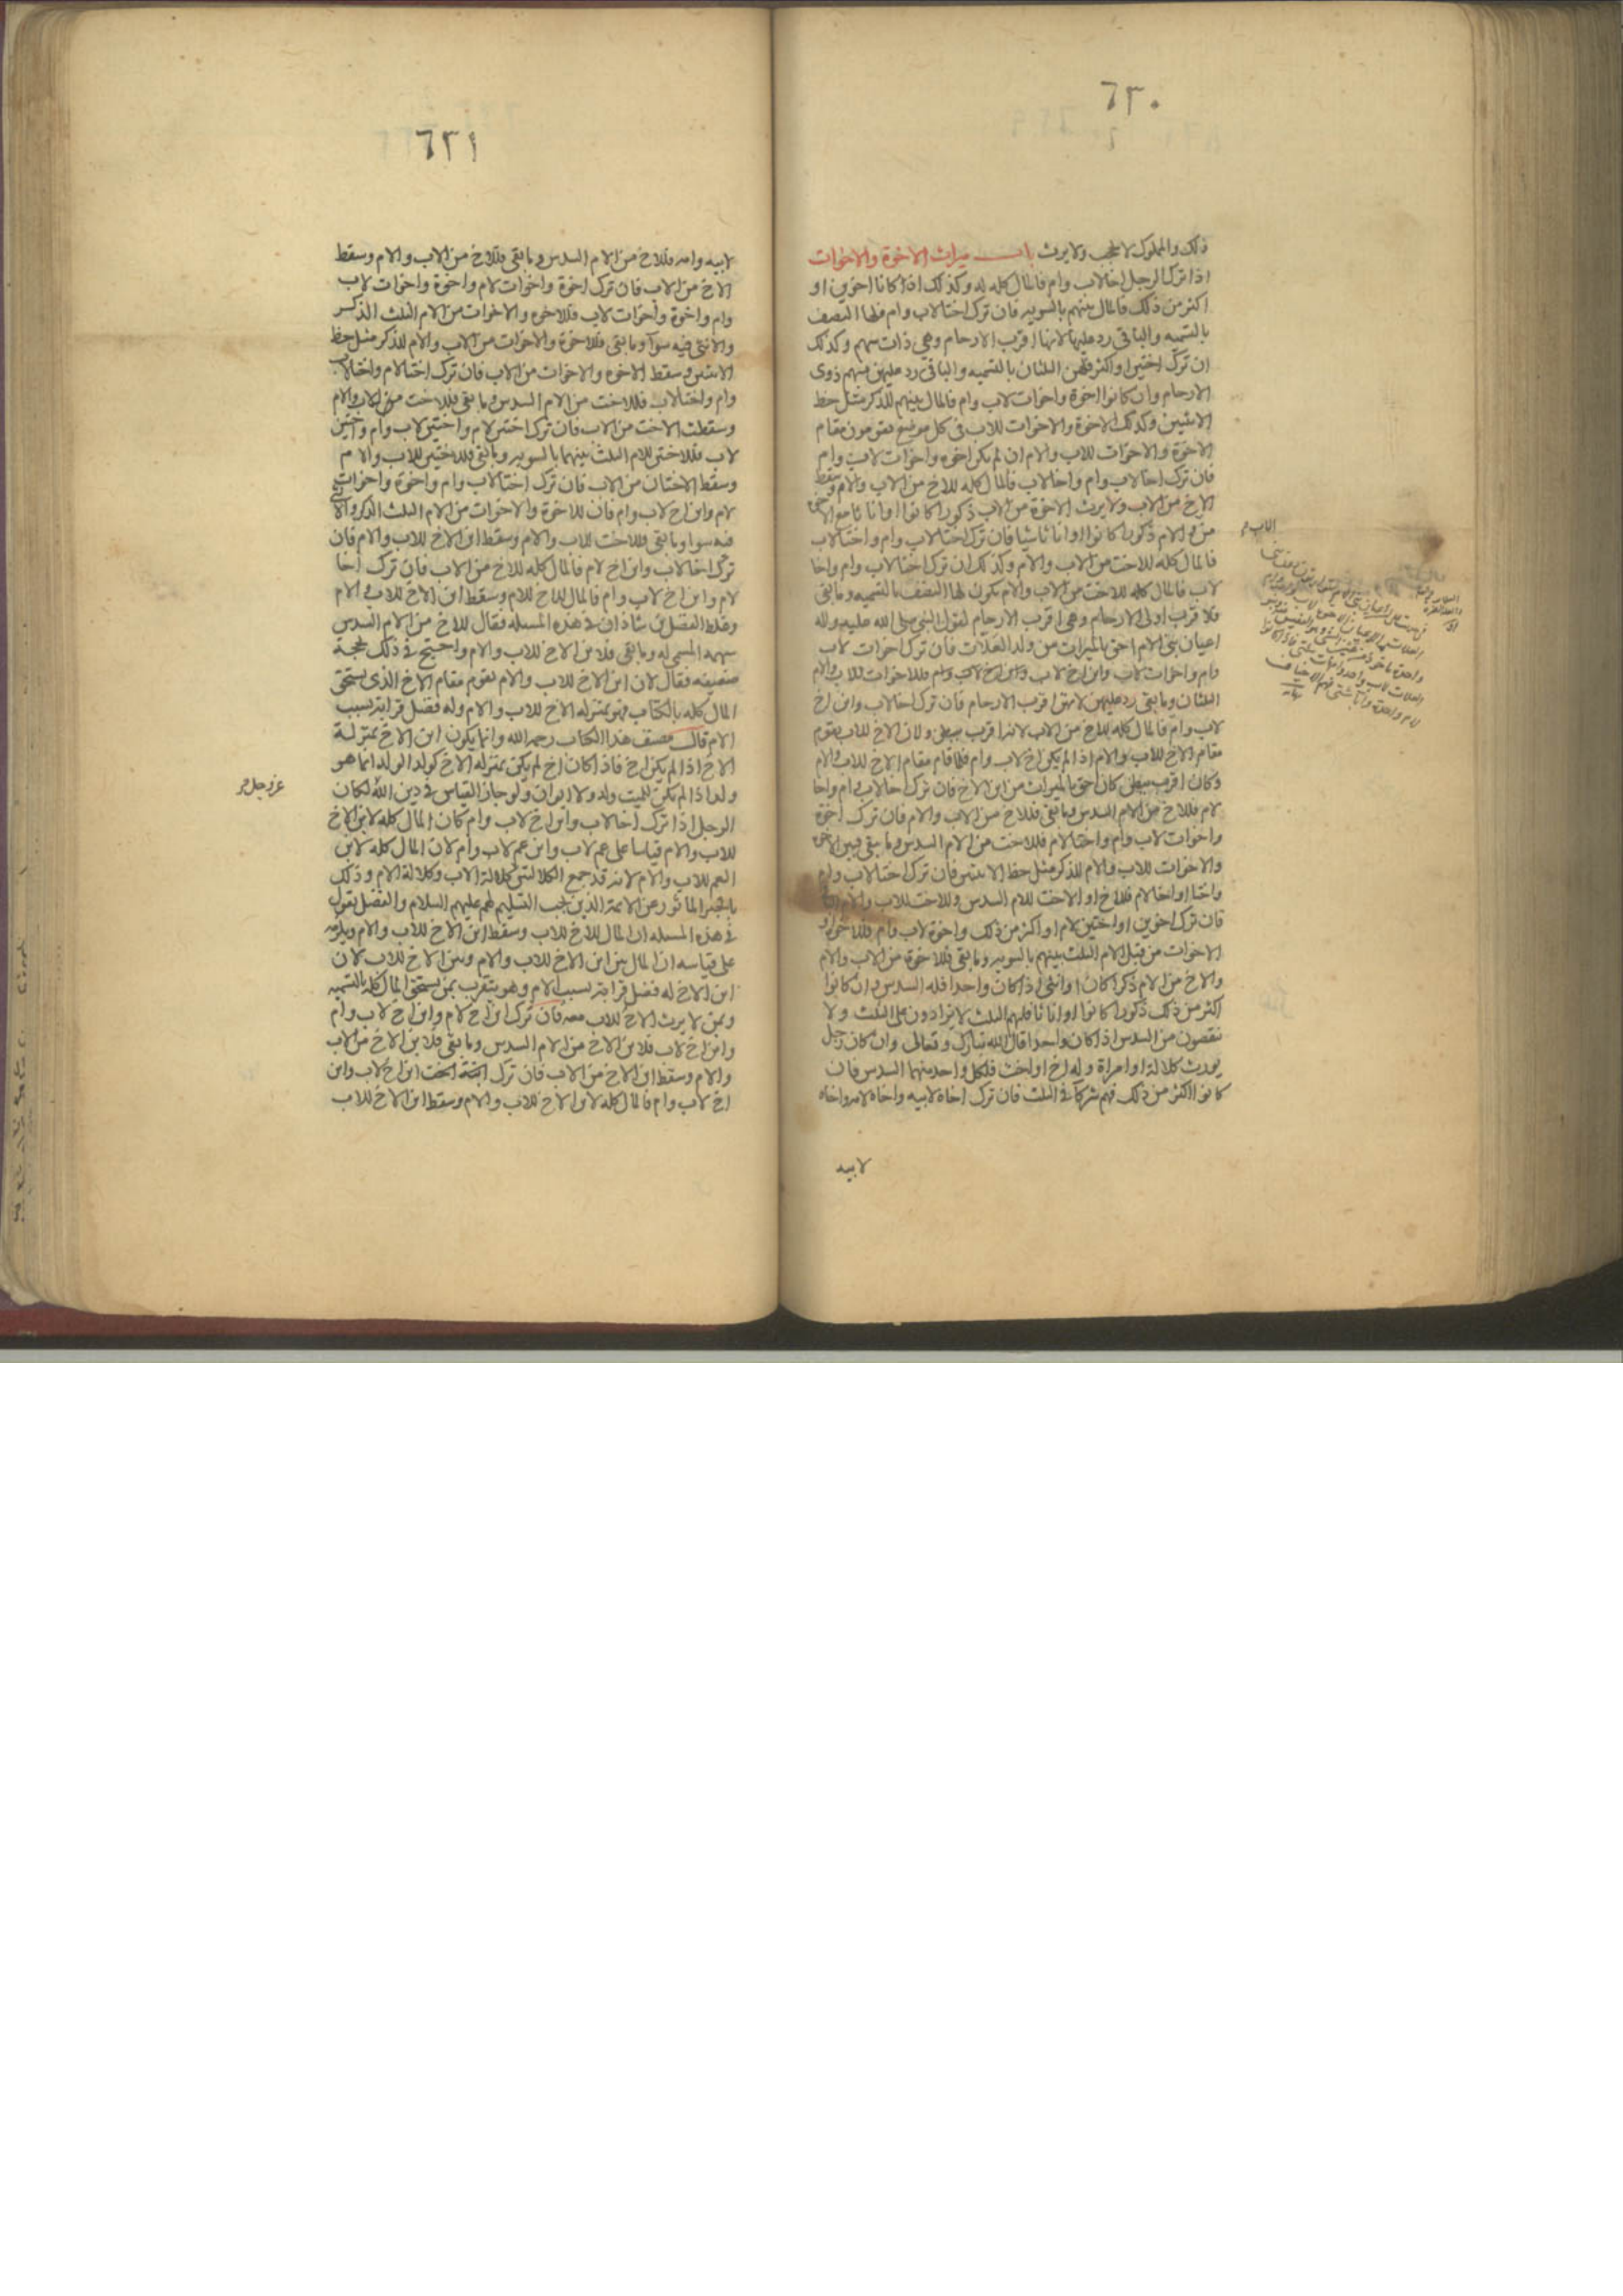 ٦٣٠
ذلك والمملوك لا يحجب ولا يرث باب ميراث الاخوة والاخوات
اذا ترك الرجل اخا لاب وام فالمال كله له وكذلك اذا كانا اخوين او
اكثر من ذلك فالمال بينهم بالسويه فان ترك اختا لاب وام فلها النصف
بالتسميه والباقى رد عليها لانها اقرب الارحام وهى ذات سهم وكذلك
ان ترك اختين او اكثر فلهن الثلثان بالتسميه والباقى رد عليهن بسهم ذوى
الارحام وان كانوا اخوة واخوات لاب وام فالمال بينهم للذكر مثل حظ
الانثيين وكذلك الاخوة والاخوات للاب فى كل موضع يقومون مقام
الاخوة والاخوات للاب والام ان لم يكن اخوه واخوات لاب وام
فان ترك اخا لاب وام واخا لاب فالمال كله للاخ من الاب والام وسقط
الاخ من الاب ولا يرث الاخوة من الاب ذكورا كانوا او اناثا مع الاخوة
من الام ذكورا كانوا او اناثا شيا فان ترك اختا لاب وام واختا لاب
فالمال كله للاخت من الاب والام وكذلك ان ترك اختا لاب وام واخا
لاب فالمال كله للاخت من الاب والام يكون لها النصف بالتسميه وما بقى
فلا قرب اولى الارحام وهى اقرب الارحام لقول النبى صلى الله عليه واله
اعيان بنى الام احق بالميراث من ولد العلات فان ترك اخوات لاب
وام واخوات لاب وابن اخ لاب فللاخوات للاب والام
الثلثان وما بقى رد عليهن لانهن اقرب الارحام فان ترك اخا لاب وابن اخ
لاب وام فالمال كله للاخ من الاب لانه اقرب ببطن ولان الاخ للاب يقوم
مقام الاخ للاب والام اذا لم يكن اخ لاب وام فلما قام مقام الاخ للاب والام
وكان اقرب ببطن كان احق بالميراث من ابن الاخ فان ترك اخا لاب وام واخا
لام فللاخ من الام السدس وما بقى فللاخ من الاب والام فان ترك اخوة
واخوات لاب وام واختا لام فللاخت من الام السدس وما بقى فبين الاخوة
والاخوات للاب والام للذكر مثل حظ الانثيين فان ترك اختا لاب وام
واختا او اخا لام فللاخ او الاخت للام السدس وللاخت للاب والام الباقى
فان ترك اخوين او اختين لام او اكثر من ذلك واخوة لاب وام فللاخوة او
الاخوات من قبل الام الثلث بينهم بالسويه وما بقى فللاخوة من الاب والام
والاخ من الام ذكرا كان او انثى اذا كان واحدا فله السدس وان كانوا
اكثر من ذلك ذكورا كانوا او اناثا فلهم الثلث لا يزادون على الثلث ولا
ينقصون من السدس اذا كان واحدا قال الله تبارك وتعالى وان كان رجل
يورث كلالة او امراة وله اخ او اخت فلكل واحد منهما السدس فان
كانوا اكثر من ذلك فهم شركا فى الثلث فان ترك اخاه لابيه واخاه لامه واخاه
لابيه
الاب م
٦٣١
لابيه وامه فللاخ من الام السدس وما بقى فللاخ من الاب والام وسقط
الاخ من الاب فان ترك اخوة واخوات لام واخوة واخوات لاب
وام واخوة واخوات لاب فللاخوه والاخوات من الام الثلث الذكر
والانثى فيه سوا وما بقى فللاخوة والاخوات من الاب والام للذكر مثل حظ
الانثيين وسقط الاخوه والاخوات من الاب فان ترك اختا لام واختا لاب
وام واختا لاب فللاخت من الام السدس وما بقى فللاخت من الاب والام
وسقطت الاخت من الاب فان ترك اختين لام واختين لاب وام واختين
لاب فللاختين للام الثلث بينهما بالسويه وما بقى فللاختين للاب والام
وسقط الاختان من الاب فان ترك اختا لاب وام واخوة واخوات
لام وابن اخ لاب وام فان للاخوة والاخوات من الام الثلث الذكر والانثى
فيه سوا وما بقى فللاخت للاب والام وسقط ابن الاخ للاب والام فان
ترك اخا لاب وابن اخ لام فالمال كله للاخ من الاب فان ترك اخا
لام وابن اخ لاب وام فالمال للاخ للام وسقط ابن الاخ للاب والام
وغلط الفضل بن شاذان فى هذه المسئله فقال للاخ من الام السدس
سهمه المسمى له وما بقى فلابن الاخ للاب والام واحتج فى ذلك بحجة
ضعيفه فقال لان ابن الاخ للاب والام يقوم مقام الاخ الذى يستحق
المال كله بالكتاب فهو بمنزله الاخ للاب والام وله فضل قرابة بسبب
الام قال مصنف هذا الكتاب رحمه الله وانما يكون ابن الاخ بمنزلة
الاخ اذا لم يكن اخ فاذا كان اخ لم يكن بمنزله الاخ كولد الولد انما هو
ولد اذا لم يكن للميت ولد ولا ابوان ولو جاز القياس فى دين الله لكان
عز وجل م
الرجل اذا ترك اخا لاب وابن اخ لاب وام كان المال كله لابن الاخ
للاب والام قياسا على عم لاب وابن عم لاب وام لان المال كله لابن
العم للاب والام لانه قد جمع الكلالتين كلالة الاب وكلالة الام وذلك
بالخبر الماثور عن الائمة الذين يجب التسليم لهم عليهم السلام والفضل يقول
فى هذه المسئله ان المال للاخ للاب وسقط ابن الاخ للاب والام ويلزمه
على قياسه ان المال بين ابن الاخ للاب والام وبين الاخ للاب لان
ابن الاخ له فضل قرابة بسبب الام وهو يتقرب بمن يستحق المال كله بالتسميه
وبمن لا يرث الاخ للاب معه فان ترك ابن اخ لام وابن اخ لاب وام
وابن اخ لاب فلابن الاخ من الام السدس وما بقى فلابن الاخ من الاب
والام وسقط ابن الاخ من الاب فان ترك ابن اخ لاب وابن
اخ لاب وام فالمال كله لابن الاخ للاب والام وسقط ابن الاخ للاب